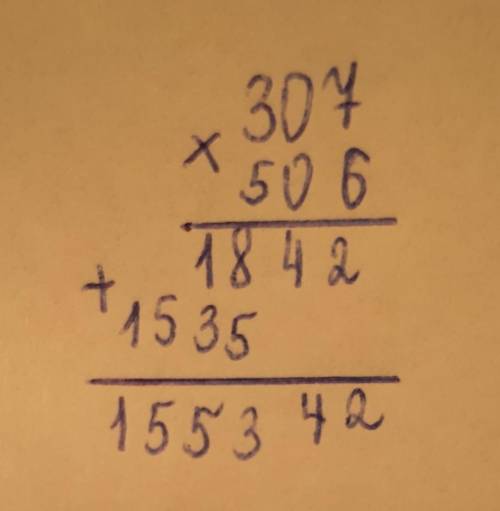 307
× 506
1842
+ 1535
155342